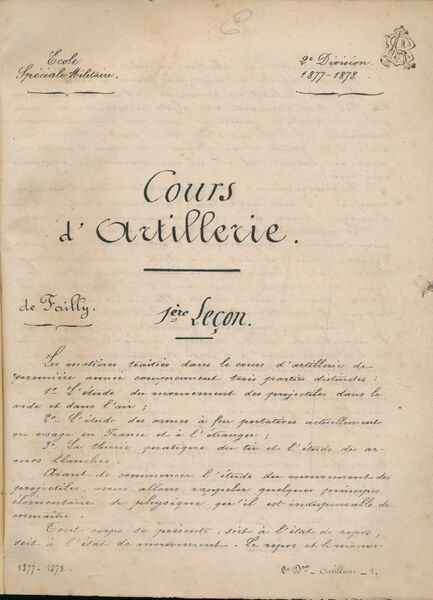 Ecole
Spéciale Militaire.
2e Division.
1877-1878.
Cours
d'Artillerie.
de Failly.
1ère Leçon.
Les matières traitées dans le cours d'artillerie de
première année comprennent trois parties distinctes :
1o L'étude du mouvement des projectiles dans le
vide et dans l'air ;
2o L'étude des armes à feu portatives actuellement
en usage en France et à l'étranger ;
3o La théorie pratique du tir et l'étude de ar-
mes blanches.
Avant de commencer l'étude du mouvement des
projectiles, nous allons rappeler quelques principes
élémentaires de physique qu'il est indispensable de
connaître.
Tout corps se présente, soit à l'état de repos,
soit à l'état de mouvement. Le repos et le mouve-
1877-1878.
2e Don - Artillerie - 1.